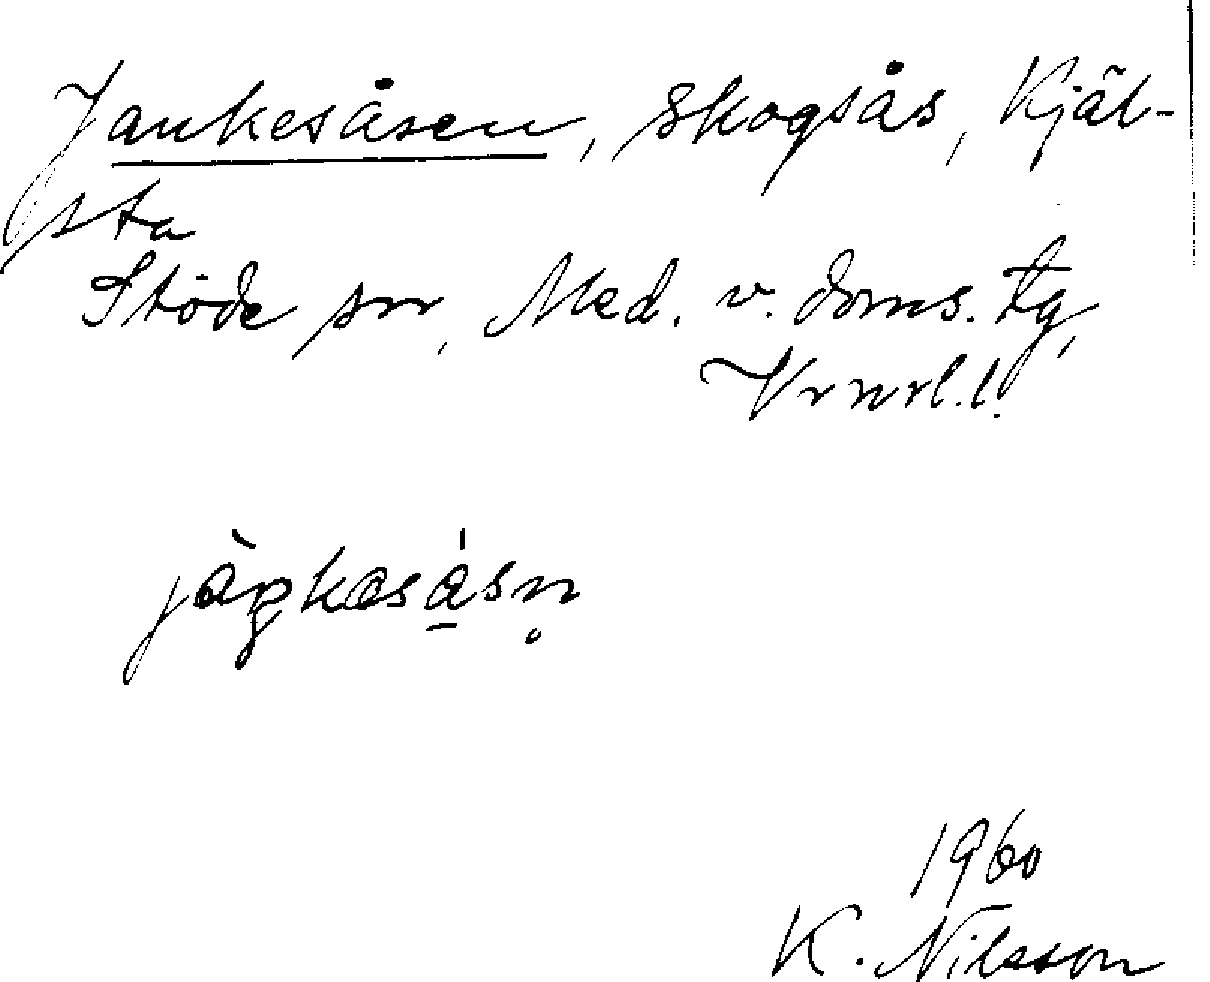 Jankesåsen, skogsås, Kjäl-
sta
Stöde sn, Med. v. doms. tg,
Vrnrl. l.
jàŋkesåsn̥
1960
K. Nilsson